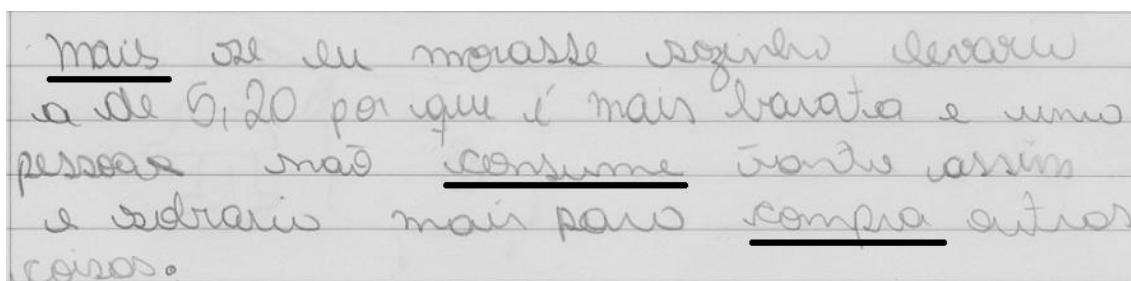 mais se eu morasse sozinho levaria
a de 5,20 por que é mais barata e uma
pessoa não consume tanto assim
e sobraria mais para compra outras
coisas.